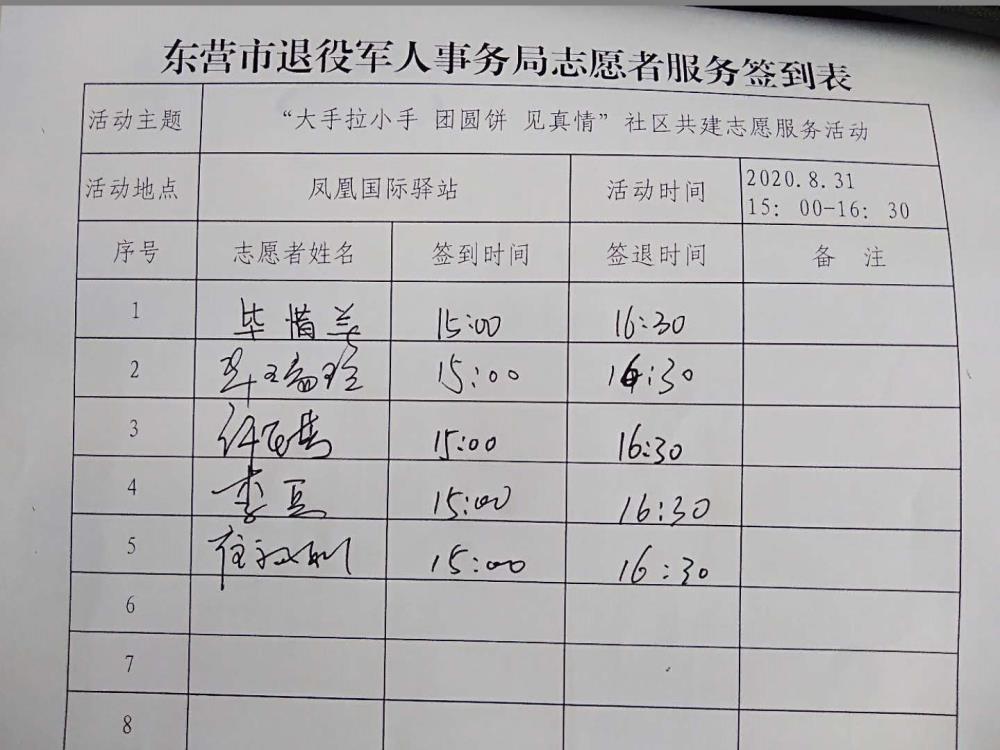 东营市退役军人事务局志愿者服务签到表
活动主题 “大手拉小手 团圆饼 见真情”社区共建志愿服务活动
活动地点 凤凰国际驿站 活动时间 2020.8.31
15：00-16：30
序号 志愿者姓名 签到时间 签退时间 备 注
1 毕惜美 15:00 16:30
2 15:00 16:30
3 15:00 16:30
4 李豆 15:00 16:30
5 15:00 16:30
6
7
8